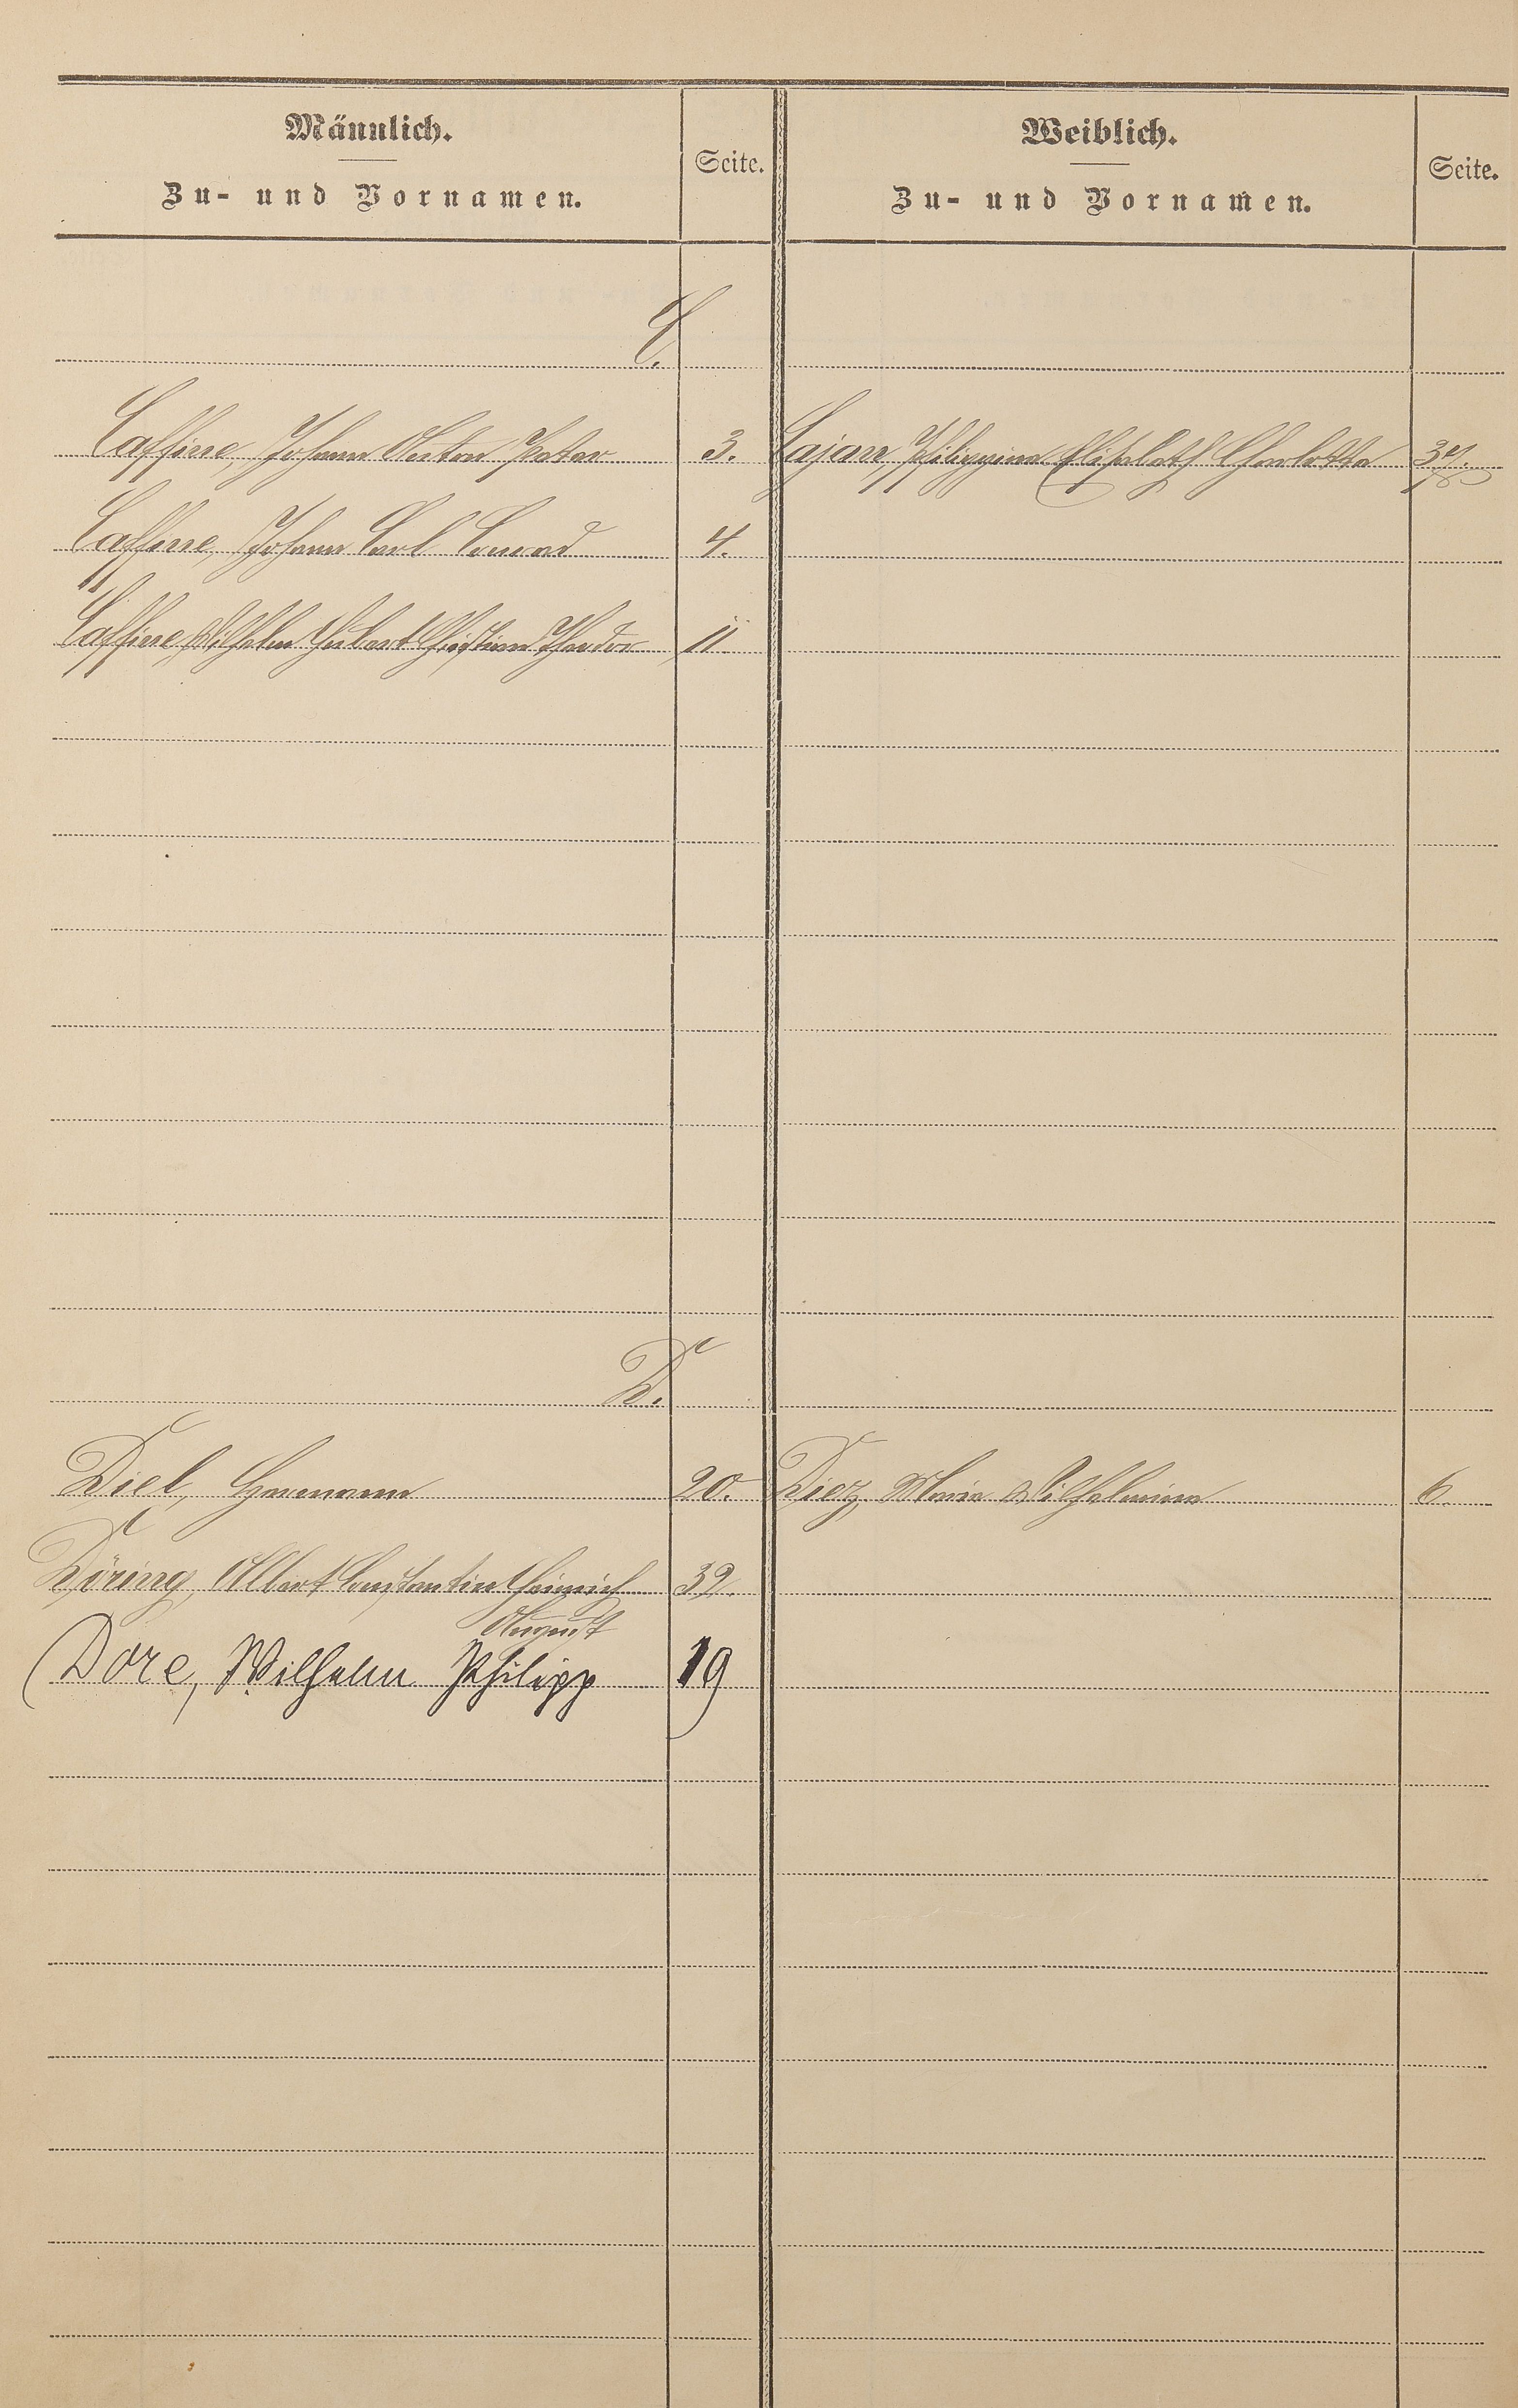 Männlich.
Zu- und Vornamen.
Seite.
Weiblich.
Zu- und Vornamen.
Seite.
C.
Caffine, Johann Anton Peter 3. Cajan, Philippine Elisabeth Charlotte 37.
Caffine, Johann Carl Conrad 4.
Caffine, Wilhelm Hubert Christian Theodor 11
D.
Diel, Hermann 20. Diez, Maria Wilhelmina 6.
Döring, Albert Constantin Heinrich 32.
August
Dore, Wilhelm Philipp 19